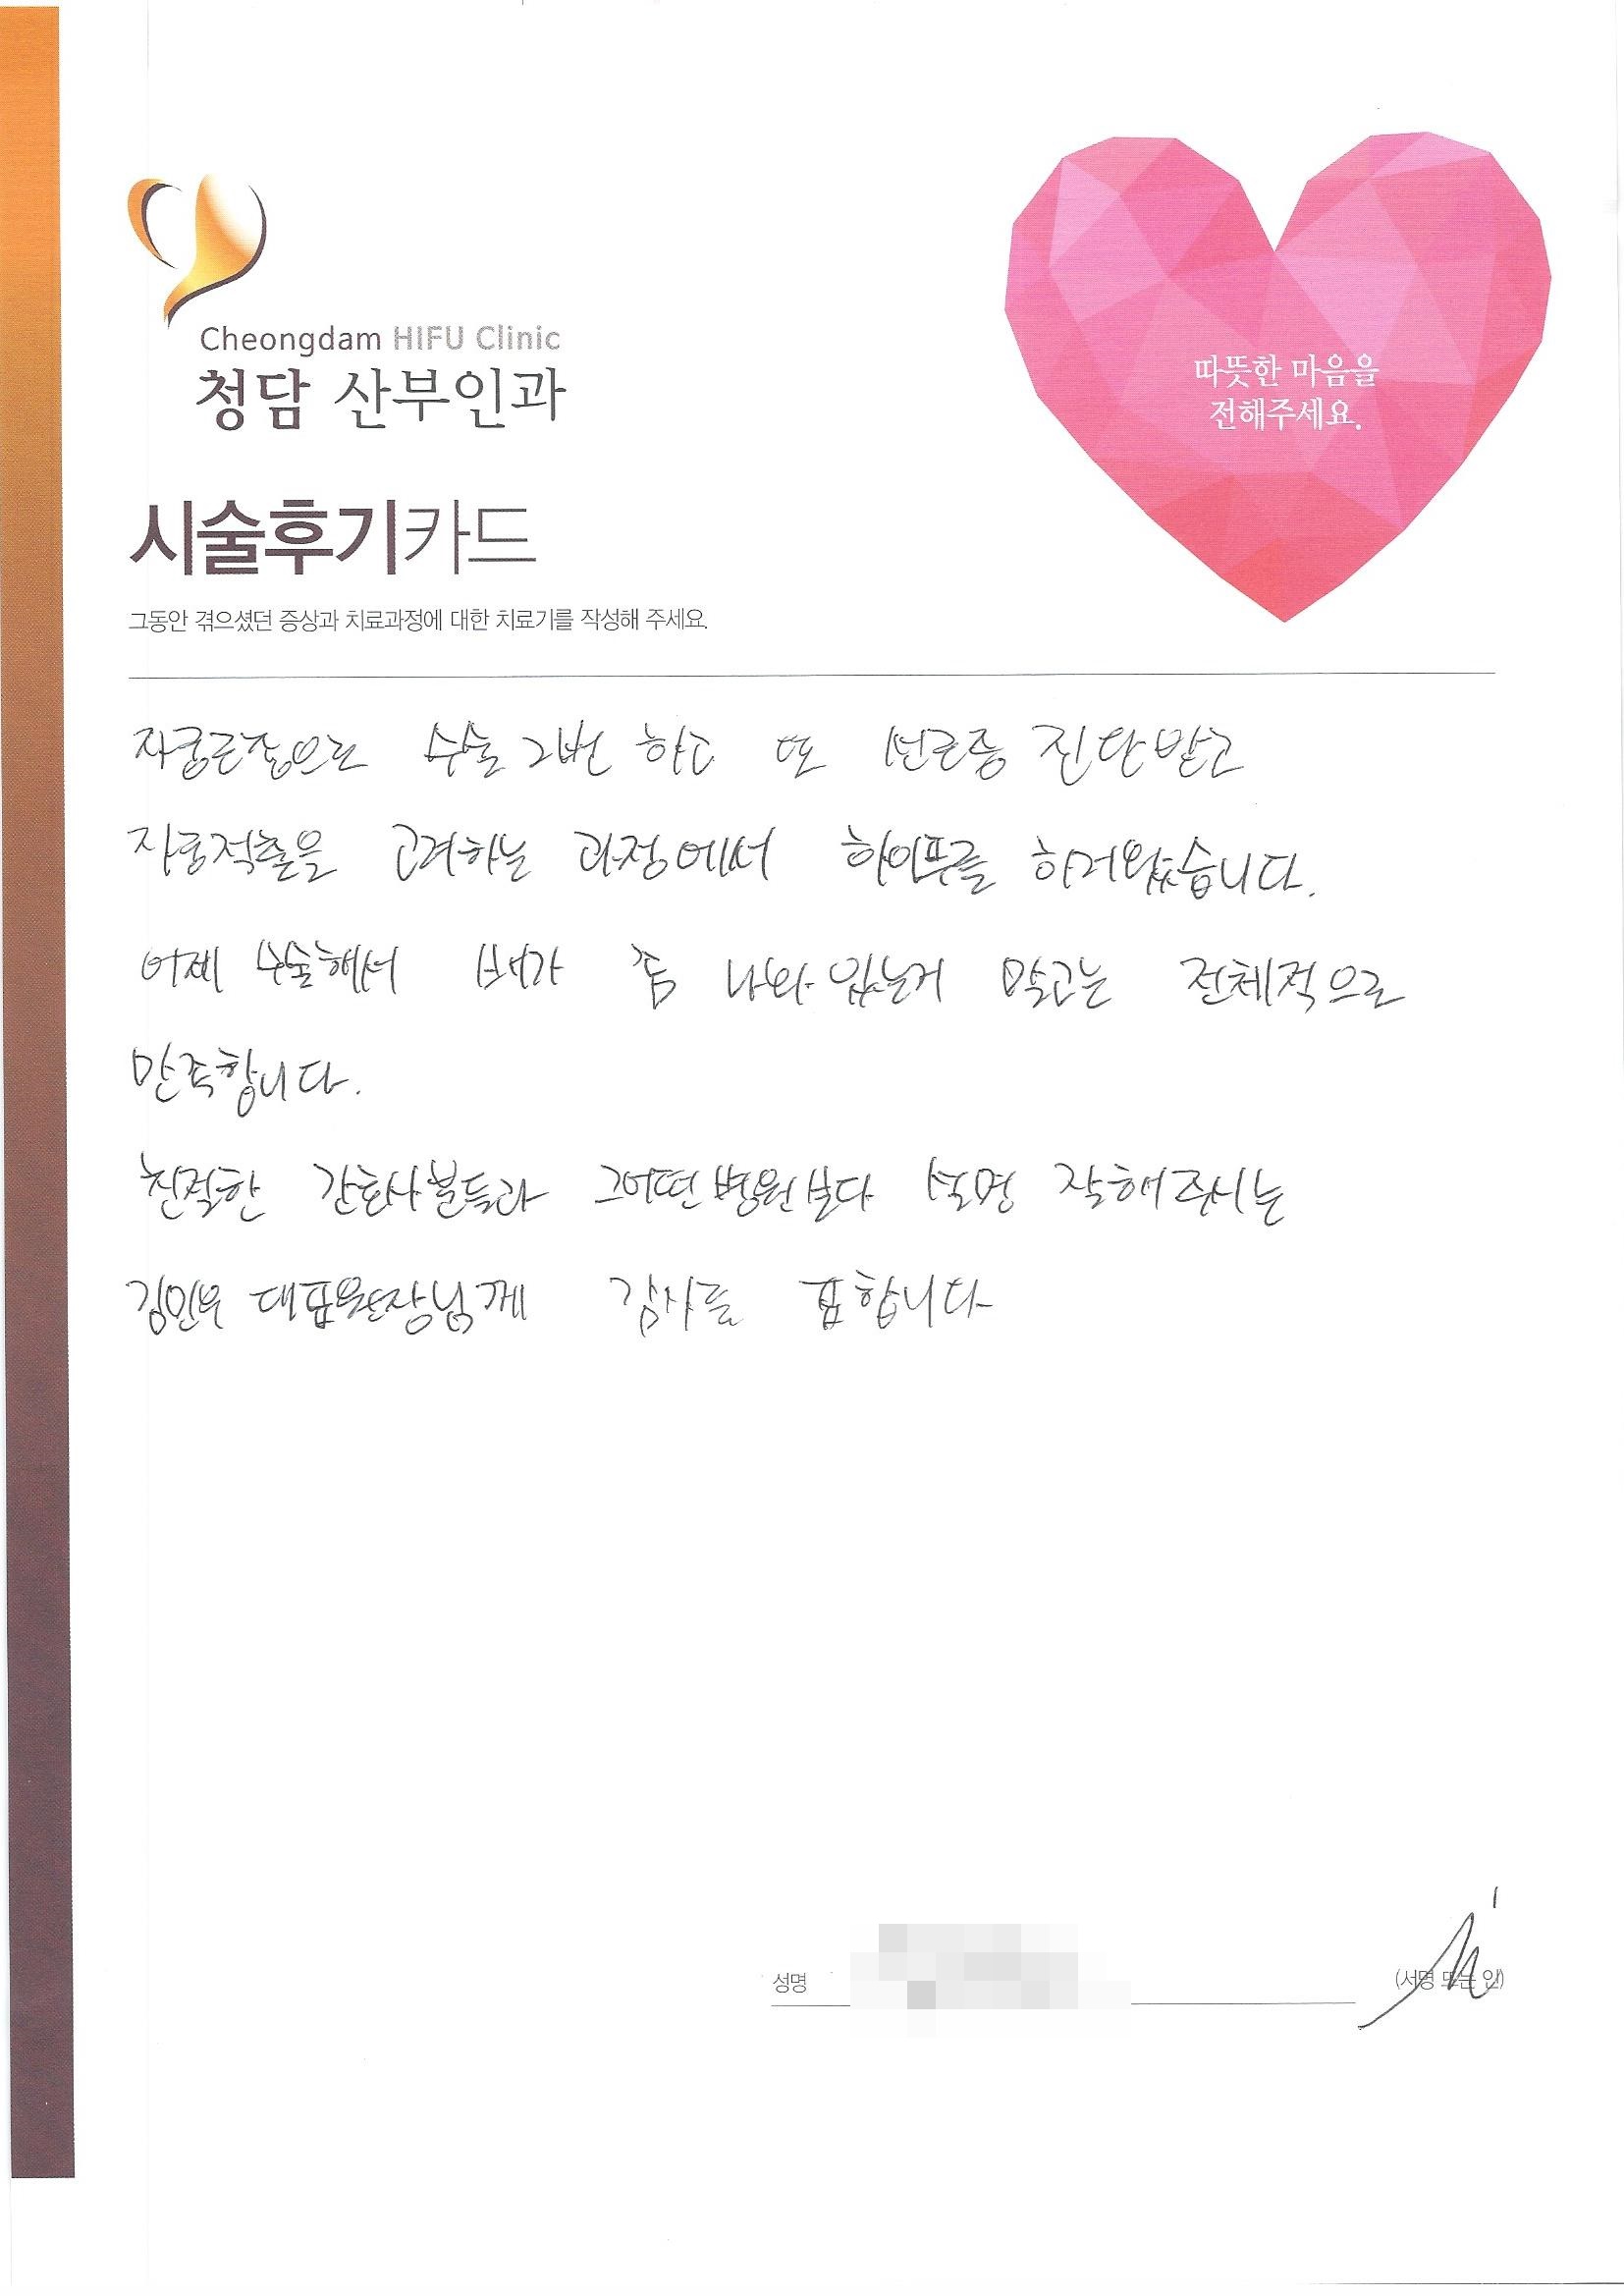 Cheongdam HIFU Clinic
청담 산부인과
따뜻한 마음을
전해주세요.
시술후기카드
그동안 겪으셨던 증상과 치료과정에 대한 치료기를 작성해 주세요.
자궁근종으로 수술 2번 하고 또 선근증 진단받고
자궁적출을 고려하는 과정에서 하이푸를 하러왔습니다.
어제 수술해서 배가 좀 나와 있는거 말고는 전체적으로
만족합니다.
친절한 간호사분들과 그어떤병원보다 설명 잘해주시는
김민우 대표원장님께 감사를 표합니다
성명
(서명 또는 인)